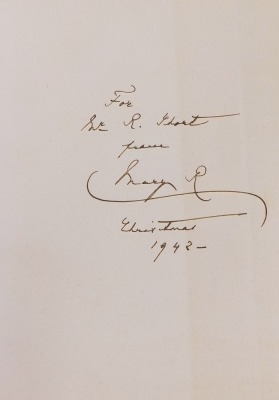 For
Mr. R. Short
from
Mary R
Christmas
1942-